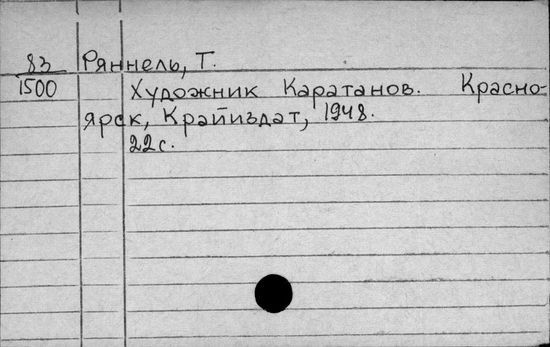 83 Ряннель, Т.
1500 Художник Каратанов. Красно-
ярск, Крайиздат, 1948.
22 с.